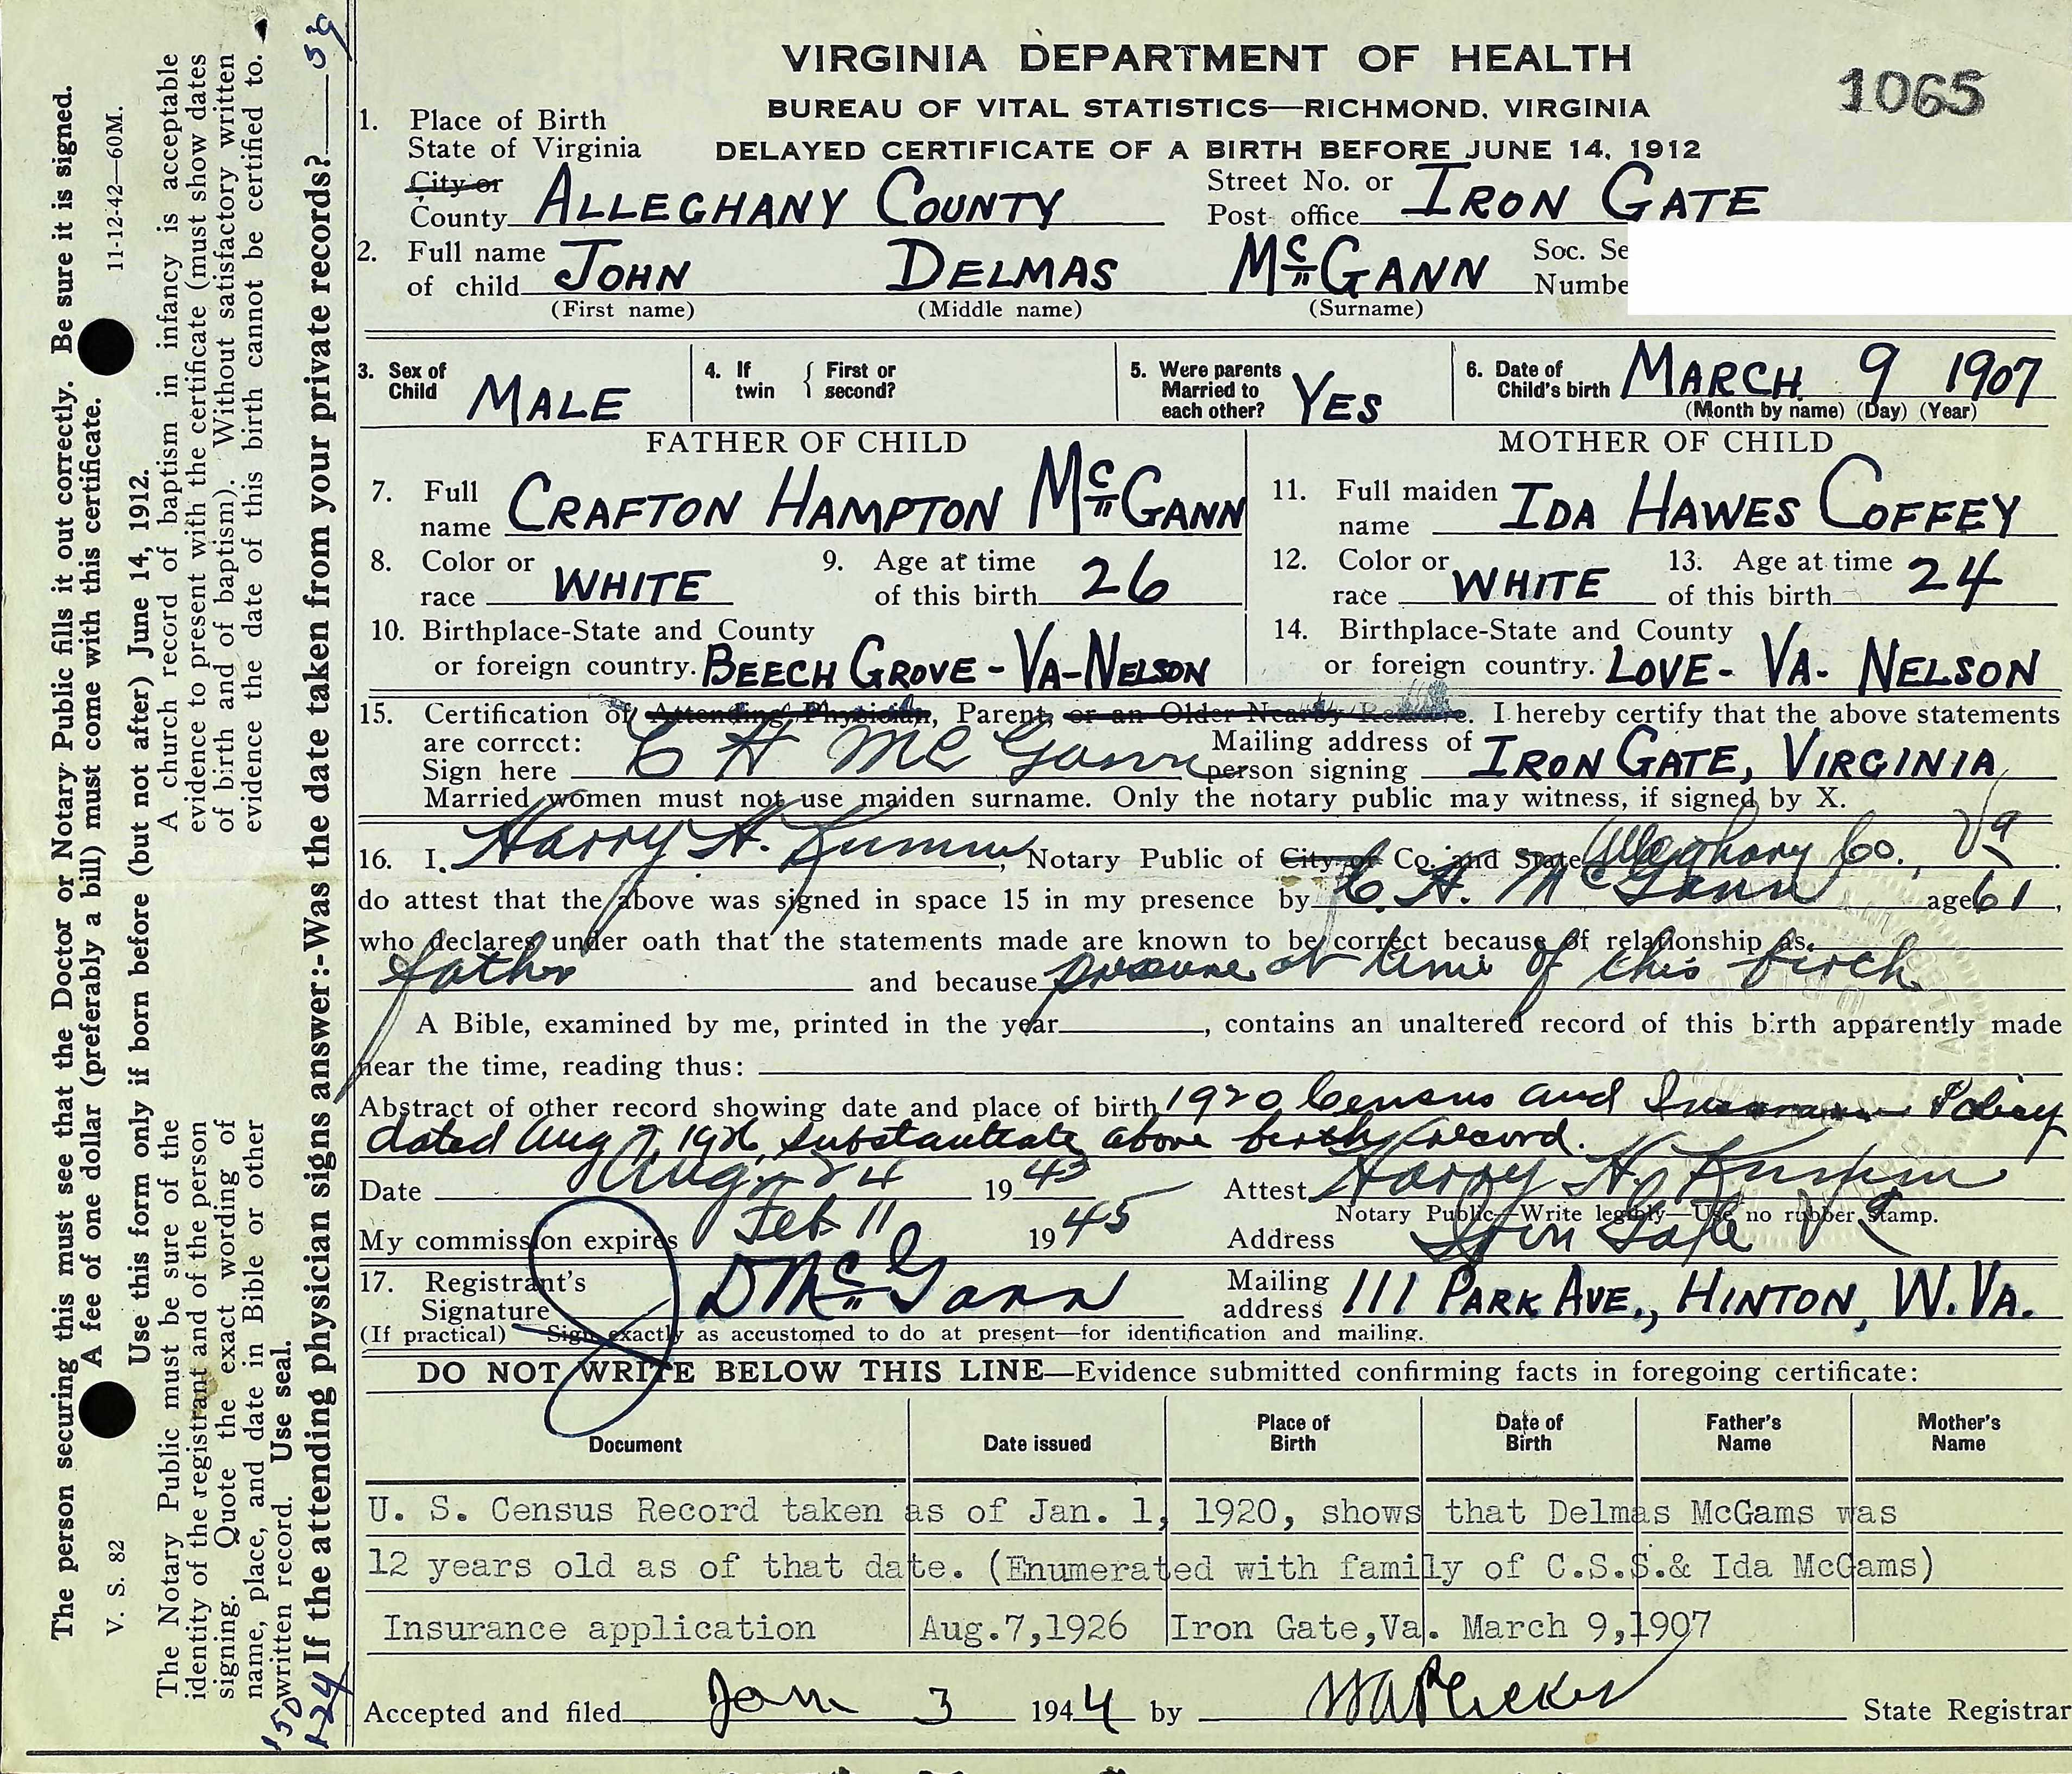 VIRGINIA DEPARTMENT OF HEALTH
BUREAU OF VITAL STATISTICS—RICHMOND, VIRGINIA
1065
DELAYED CERTIFICATE OF A BIRTH BEFORE JUNE 14, 1912
1. Place of Birth
State of Virginia
City or
County ALLEGHANY COUNTY Street No. or Post office IRON GATE
2. Full name of child JOHN DELMAS McGANN Soc. Se
Numbe
(First name) (Middle name) (Surname)
3. Sex of Child MALE 4. If twin { First or second? 5. Were parents Married to each other? YES 6. Date of Child's birth MARCH 9 1907
(Month by name) (Day) (Year)
FATHER OF CHILD MOTHER OF CHILD
7. Full name CRAFTON HAMPTON McGANN 11. Full maiden name IDA HAWES COFFEY
8. Color or race WHITE 9. Age at time of this birth 26 12. Color or race WHITE 13. Age at time of this birth 24
10. Birthplace-State and County or foreign country. BEECH GROVE - VA - NELSON 14. Birthplace-State and County or foreign country. LOVE - VA - NELSON
15. Certification of Attending Physician, Parent, or an Older Nearby Relative. I hereby certify that the above statements
are correct:
Sign here C H McGann Mailing address of person signing IRON GATE, VIRGINIA
Married women must not use maiden surname. Only the notary public may witness, if signed by X.
16. I, Harry H. , Notary Public of City or Co. and State Alleghany Co., Va.
do attest that the above was signed in space 15 in my presence by C. H. McGann age 61,
who declares under oath that the statements made are known to be correct because of relationship as
father and because at time of this birth
A Bible, examined by me, printed in the year , contains an unaltered record of this birth apparently made
near the time, reading thus:
Abstract of other record showing date and place of birth 1920 Census and Insurance Policy
dated Aug 7, 1926, substantiate above birth record.
Date Aug 24 1943 Attest Harry H.
Notary Public—Write legibly—Use no rubber stamp.
My commission expires Feb 11 1945 Address Iron Gate Va
17. Registrant's Signature J D McGann Mailing address 111 PARK AVE., HINTON, W. VA.
(If practical) Sign exactly as accustomed to do at present—for identification and mailing.
DO NOT WRITE BELOW THIS LINE—Evidence submitted confirming facts in foregoing certificate:
Document Date issued Place of Birth Date of Birth Father's Name Mother's Name
U. S. Census Record taken as of Jan. 1, 1920, shows that Delmas McGams was
12 years old as of that date. (Enumerated with family of C.S.S.& Ida McGams)
Insurance application Aug.7,1926 Iron Gate,Va. March 9,1907
Accepted and filed Jan 3 1944 by W A Plecker State Registrar
The person securing this must see that the Doctor or Notary Public fills it out correctly. Be sure it is signed.
A fee of one dollar (preferably a bill) must come with this certificate.
V. S. 82 11-12-42—60M.
Use this form only if born before (but not after) June 14, 1912.
The Notary Public must be sure of the
identity of the registrant and of the person
signing. Quote the exact wording of
name, place, and date in Bible or other
written record. Use seal.
A church record of baptism in infancy is acceptable
evidence to present with the certificate (must show dates
of birth and of baptism). Without satisfactory written
evidence the date of this birth cannot be certified to.
If the attending physician signs answer:-Was the date taken from your private records?